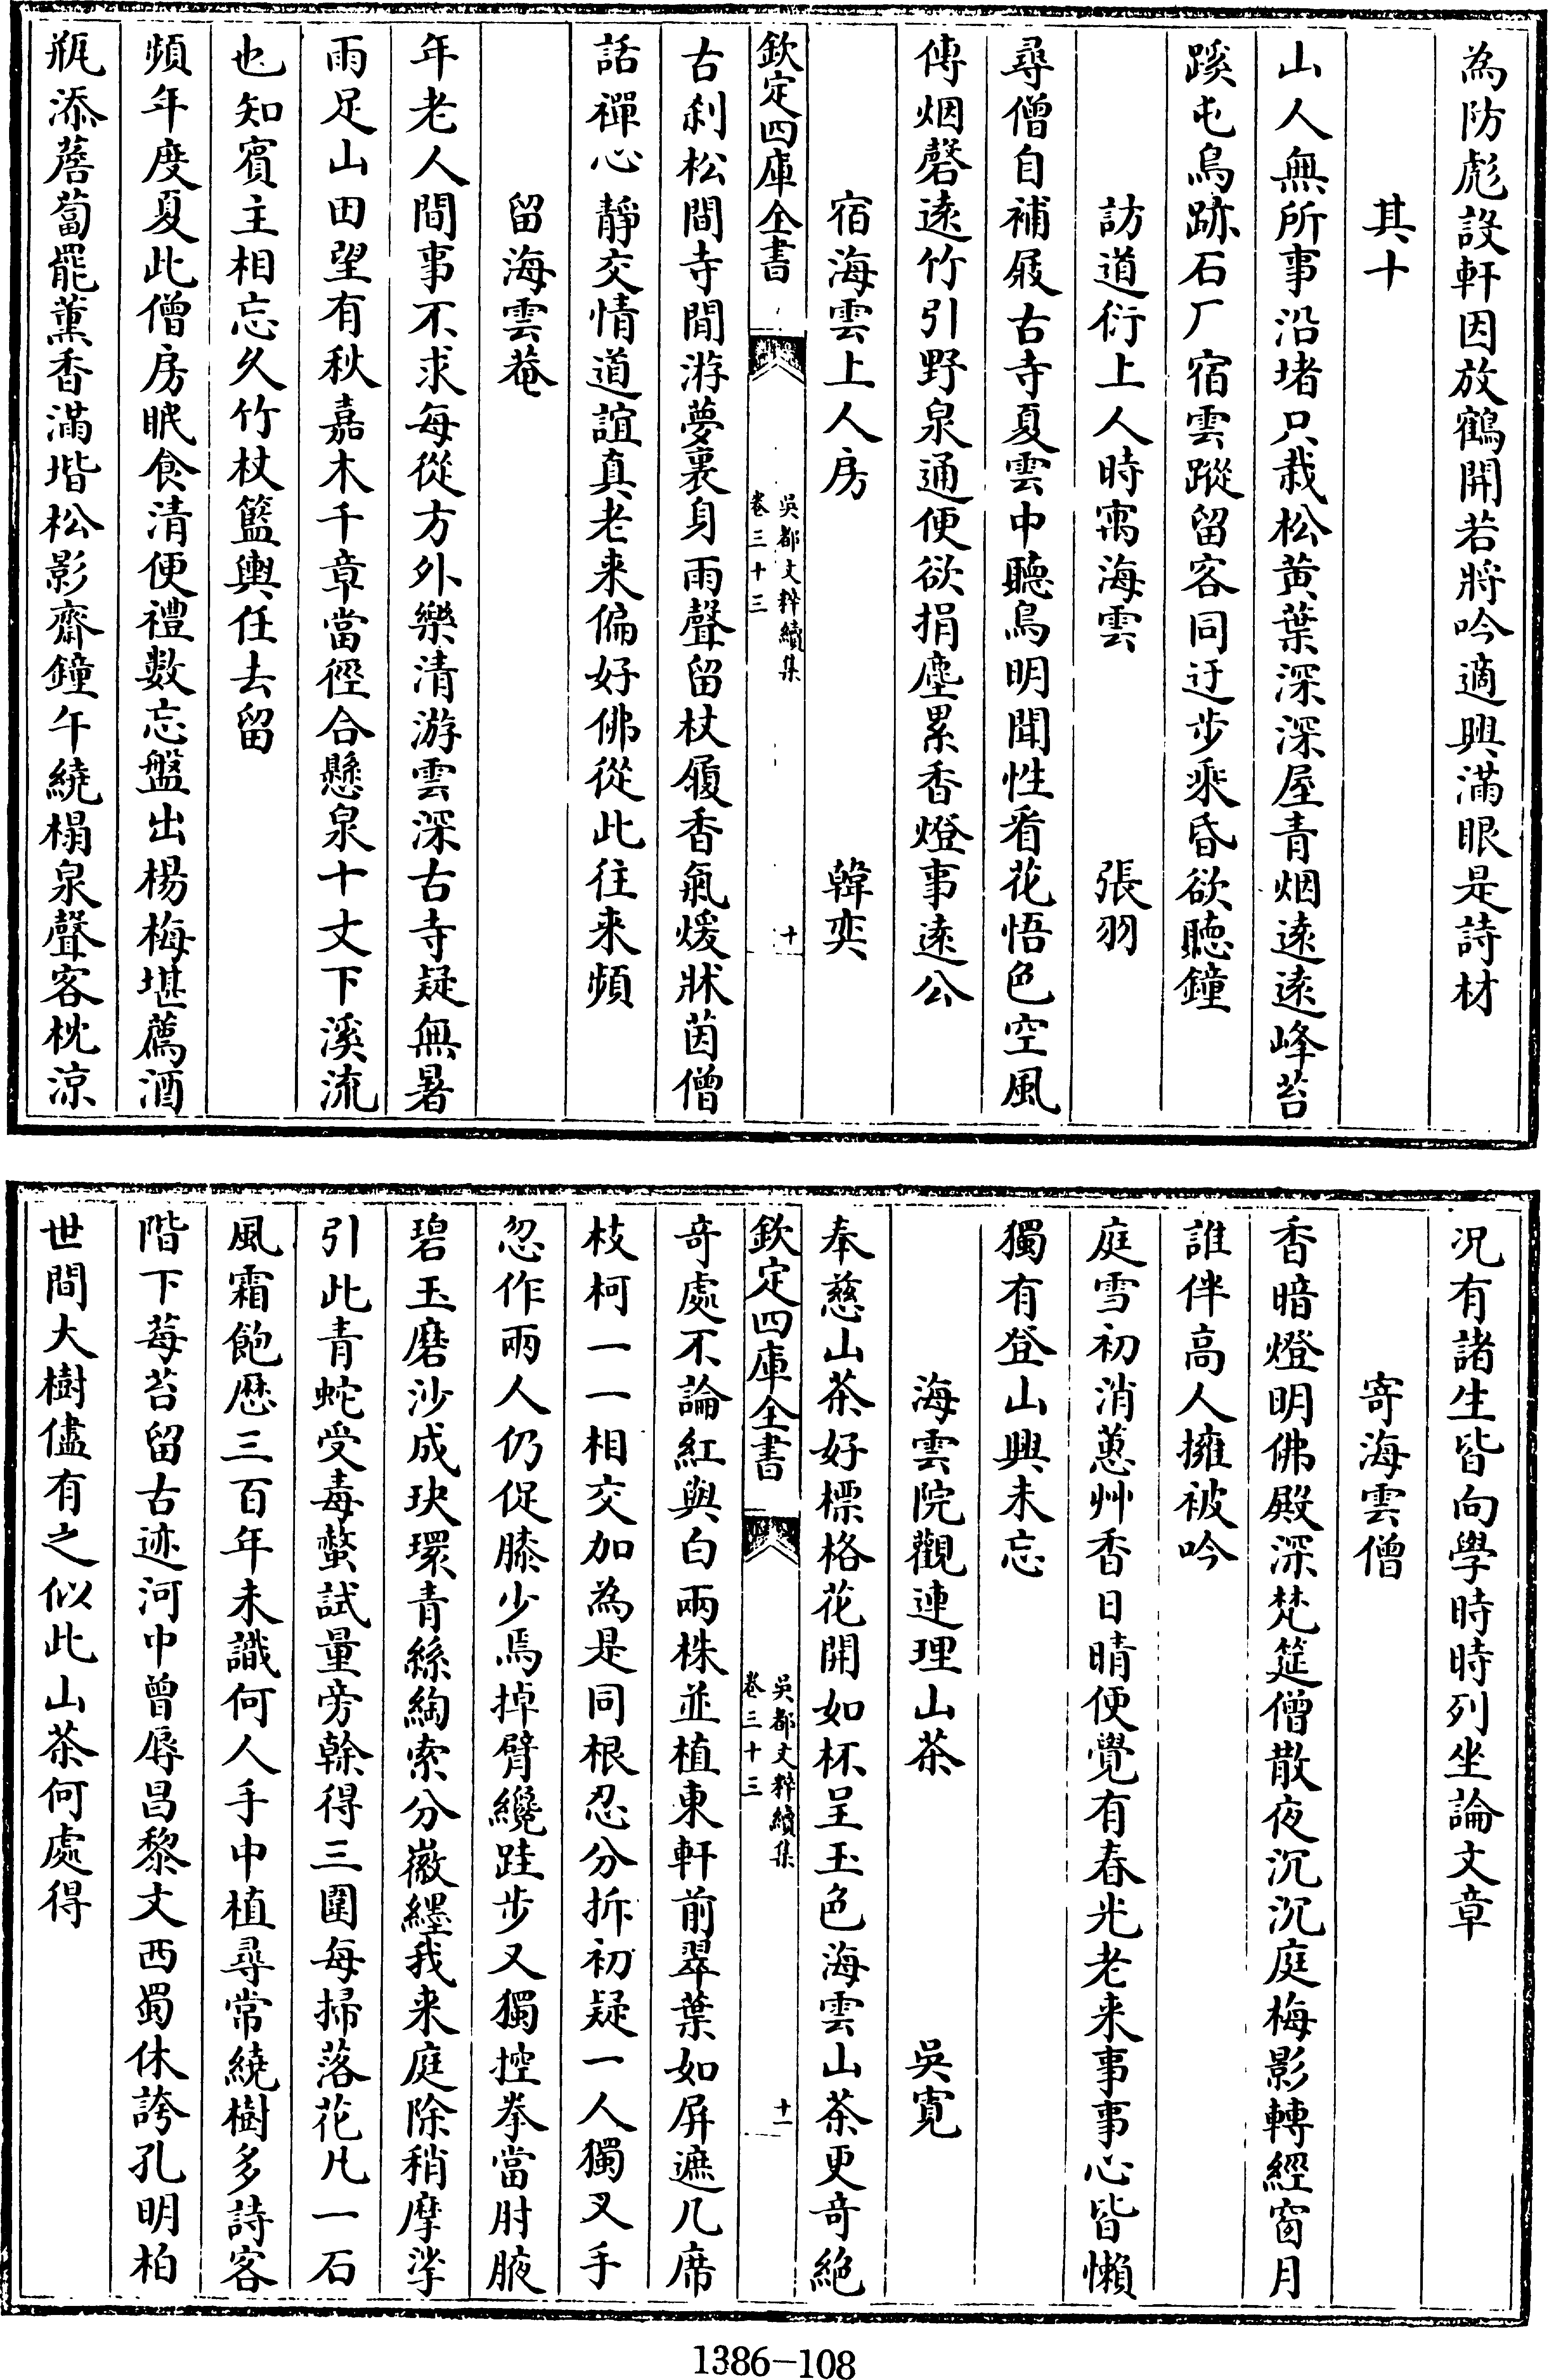 為防彪設軒因放鶴開若將吟適興滿眼是詩材
其十
山人無所事沿堵只栽松黄葉深深屋青烟遠遠峰苔
蹊屯鳥跡石厂宿雲蹤留客同迂步乘昏欲聽鐘
訪道衍上人時寓海雲 張羽
尋僧自補屐古寺夏雲中聽鳥明聞性看花悟色空風
傳烟磬遠竹引野泉通便欲捐塵累香燈事遠公
宿海雲上人房 韓奕
欽定四庫全書
吳都文粹續集
卷三十三
十
古刹松間寺閒游夢裏身雨聲留杖履香氣煖牀茵僧
話禪心靜交情道誼真老來偏好佛從此往來頻
留海雲菴
年老人間事不求每從方外樂清游雲深古寺疑無暑
雨足山田望有秋嘉木千章當徑合懸泉十丈下溪流
也知賓主相忘久竹杖籃輿任去留
頻年度夏此僧房眠食清便禮數忘盤出楊梅堪薦酒
瓶添薝蔔罷薰香滿堦松影齋鐘午繞榻泉聲客枕涼
况有諸生皆向學時時列坐論文章
寄海雲僧
香暗燈明佛殿深梵筵僧散夜沉沉庭梅影轉經窗月
誰伴高人擁被吟
庭雪初消蕙艸香日晴便覺有春光老來事事心皆懶
獨有登山興未忘
海雲院觀連理山茶 吳寛
奉慈山茶好標格花開如杯呈玉色海雲山茶更奇絶
欽定四庫全書
吳都文粹續集
卷三十三
十一
奇處不論紅與白兩株並植東軒前翠葉如屏遮几席
枝柯一一相交加為是同根忍分拆初疑一人獨叉手
忽作兩人仍促膝少焉掉臂纔跬步又獨控拳當肘腋
碧玉磨沙成玦環青絲綯索分徽纆我來庭除稍摩挲
引此青蛇受毒螫試量旁榦得三圍每掃落花凡一石
風霜飽歴三百年未識何人手中植尋常繞樹多詩客
階下莓苔留古迹河中曾辱昌黎文西蜀休誇孔明柏
世間大樹儘有之似此山茶何處得
1386-108